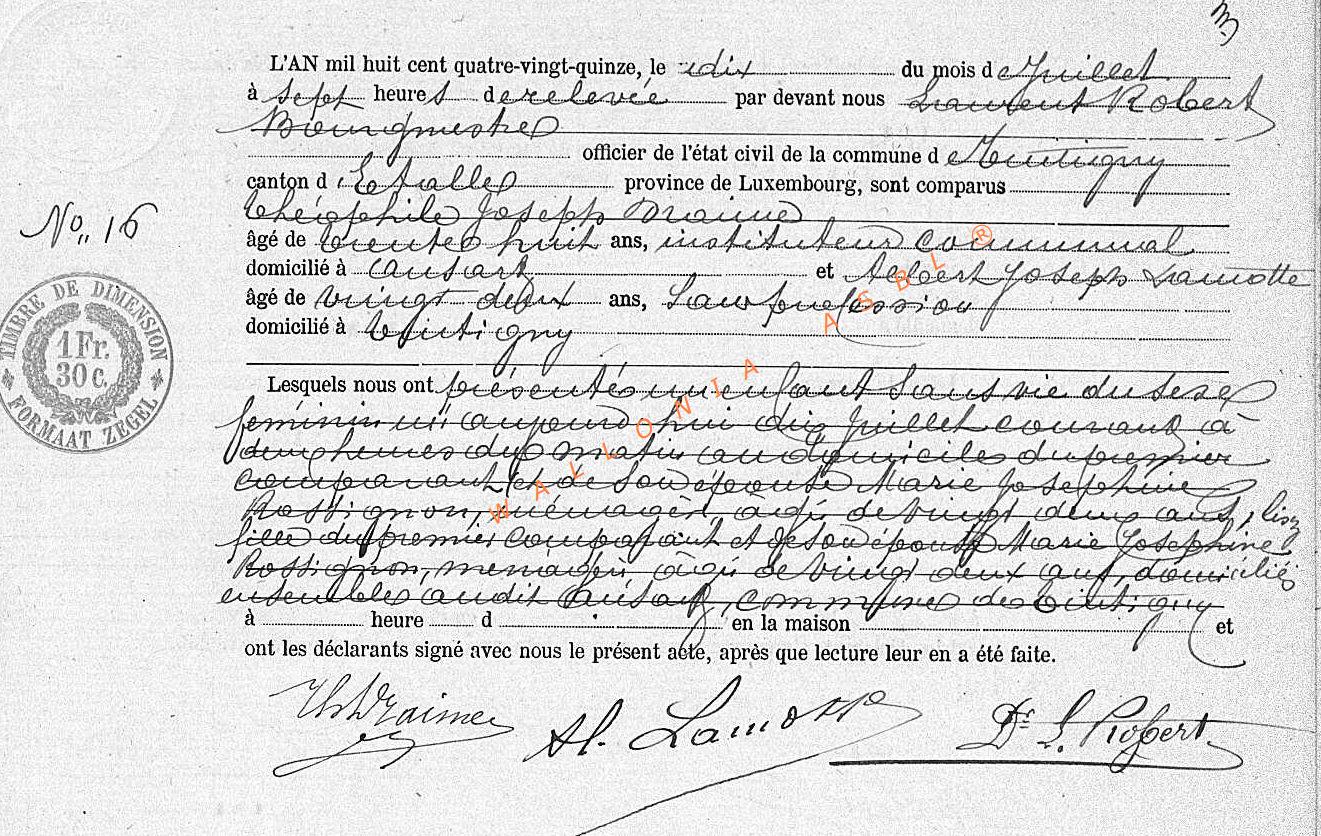 3
L'AN mil huit cent quatre-vingt-quinze, le dix du mois de Juillet
à sept heures de relevée par devant nous Laurent Robert
Bourgmestre
officier de l'état civil de la commune de Tintigny
canton d'Etalle province de Luxembourg, sont comparus
Théophile Joseph Draime
No. 16
âgé de trente huit ans, instituteur communal
domicilié à Ansart et Albert Joseph Lamotte
âgé de vingt deux ans, Sans profession
domicilié à Tintigny
TIMBRE DE DIMENSION
1 Fr.
30 c.
FORMAAT ZEGEL
Lesquels nous ont présenté un enfant Sans vie du sexe
féminin né aujourd'hui dix Juillet courant à
deux heures du matin au domicile du premier
comparant et de son épouse Marie Josephine
Rossignon, ménagère, âgée de vingt deux ans,
fille du premier comparant et de son épouse Marie Josephine
Rossignon, ménagère âgée de vingt deux ans, domiciliés
ensemble audit Ansart, commune de Tintigny
à heure d en la maison et
ont les déclarants signé avec nous le présent acte, après que lecture leur en a été faite.
Th Draime Al. Lamotte Dr L. Robert
WALLONIA ASBL ®